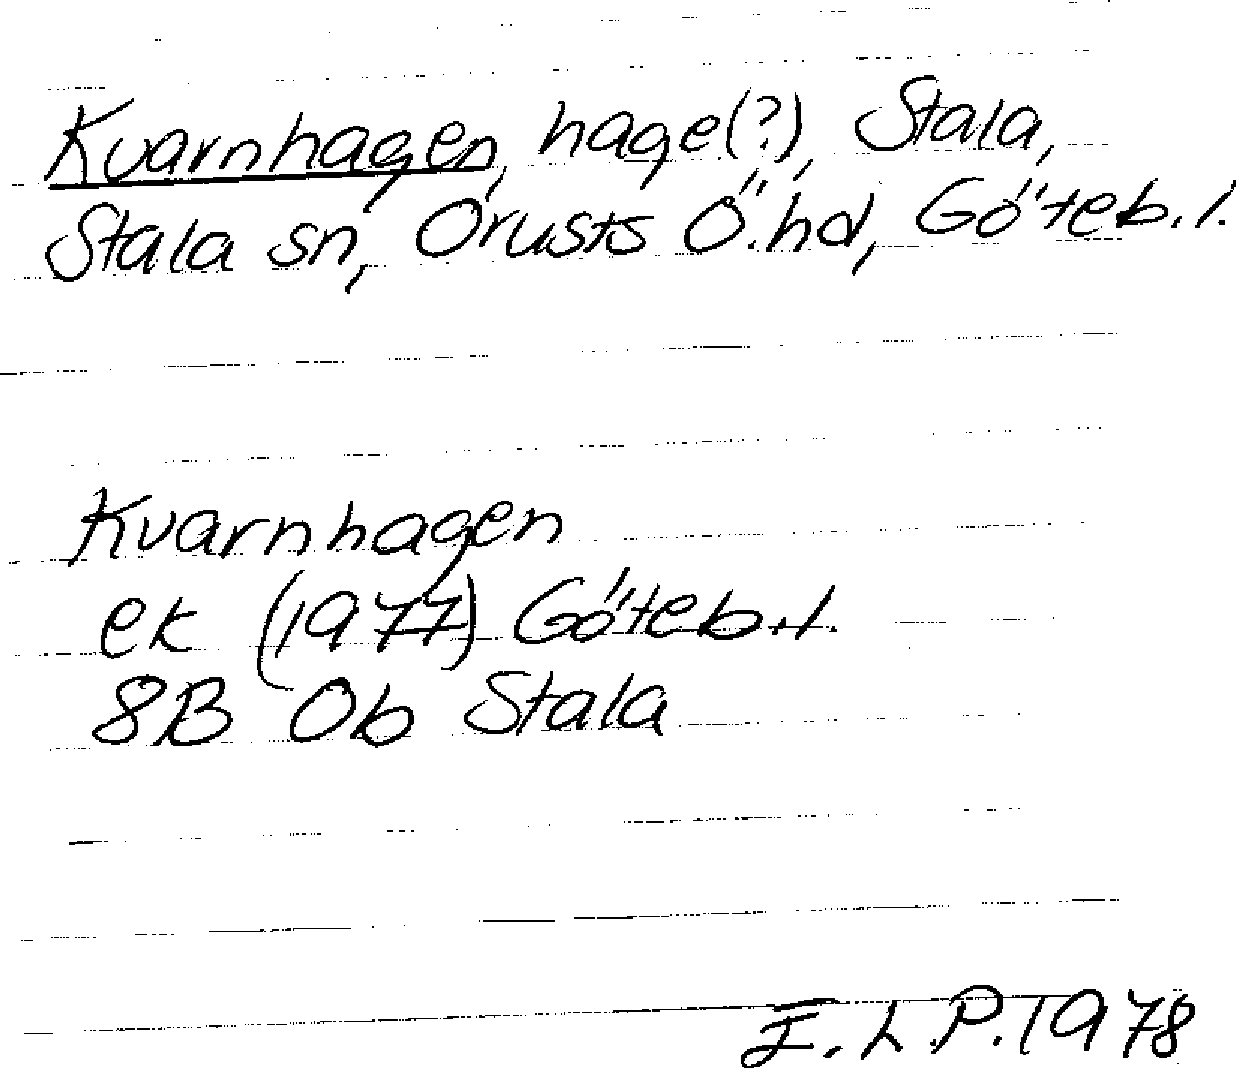 Kvarnhagen, hage(?), Stala,
Stala sn, Orusts Ö. hd, Göteb. l.
Kvarnhagen
ek (1977) Göteb. l.
8B 0b Stala
I. L. P. 1978